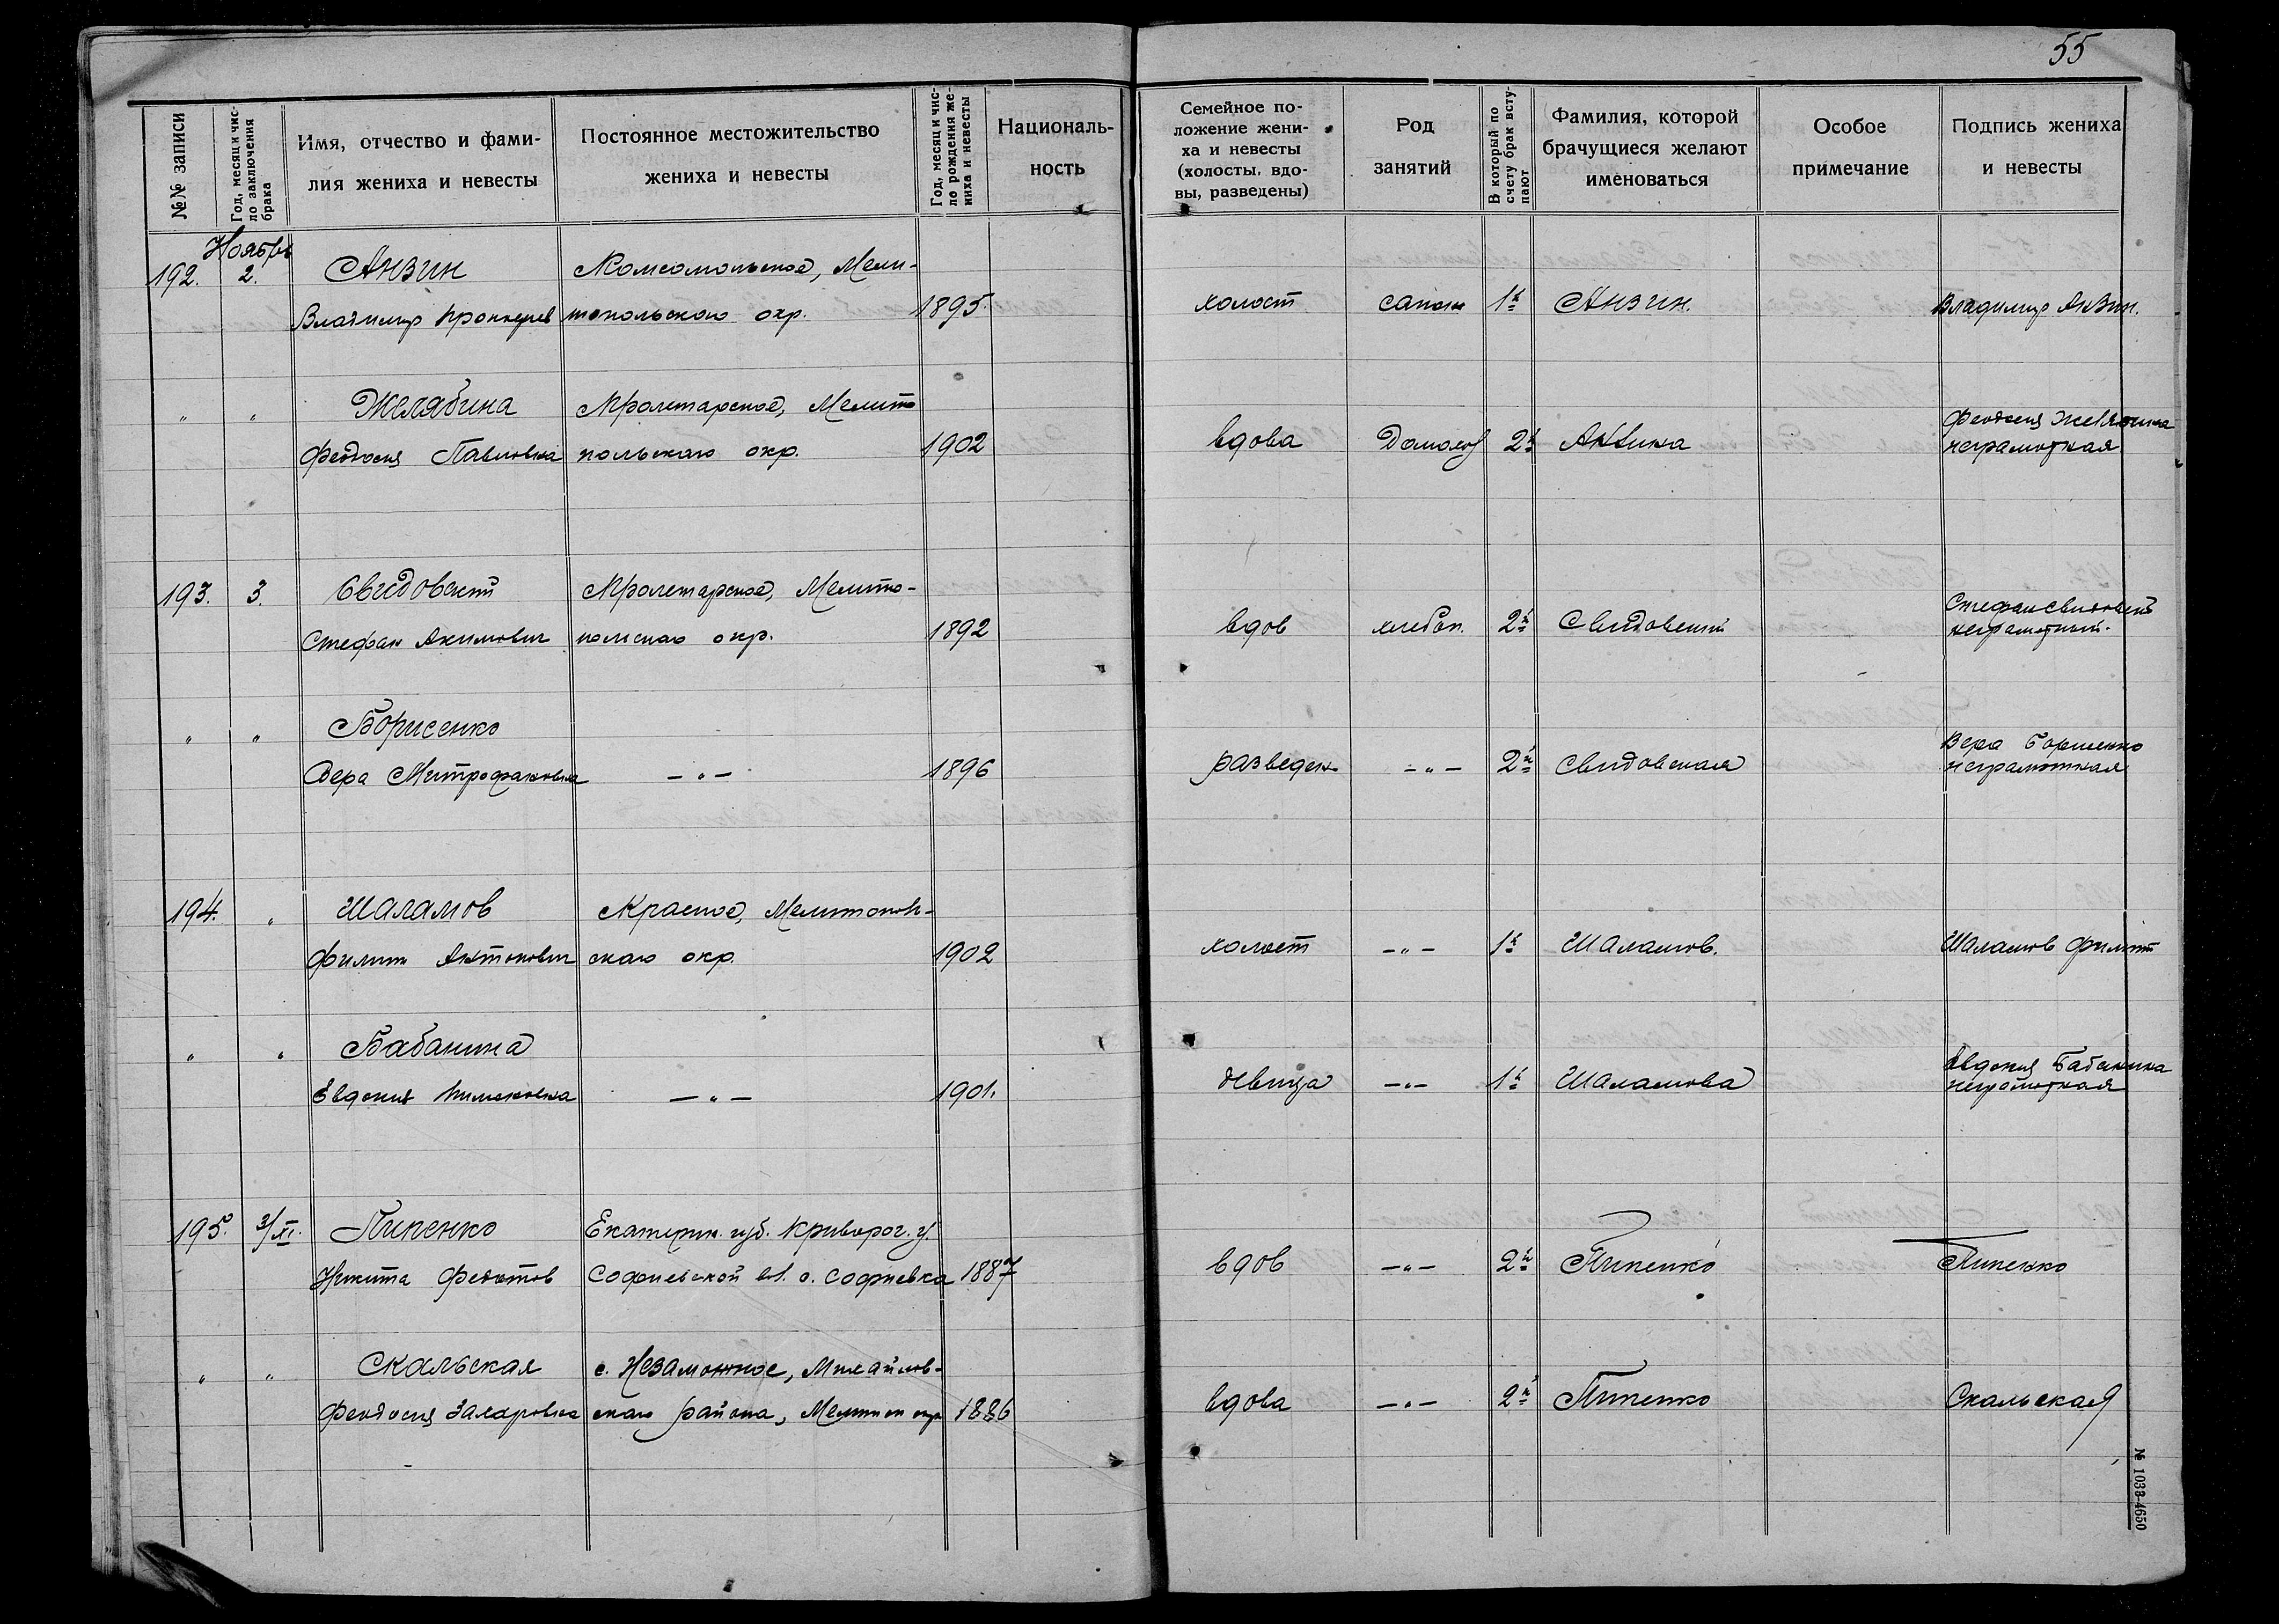 55
№№ записи
Год, месяц и чис-
ло заключения
брака
Имя, отчество и фами-
лия жениха и невесты
Постоянное местожительство
жениха и невесты
Год, месяц и чис-
ло рождения же-
ниха и невесты
Националь-
ность
Семейное по-
ложение жени-
ха и невесты
(холосты, вдо-
вы, разведены)
Род
занятий
В который по
счету брак всту-
пают
Фамилия, которой
брачущиеся желают
именоваться
Особое
примечание
Подпись жениха
и невесты
Ноябрь
192. 2. Анзин Комсомольское, Мели-
Владимир топольского окр. 1895. холост сапож 1й Анзин. Владимир Анзин.
" " Желябина Пролетарское, Мелито
Феодосия Павловна польского окр. 1902 вдова Домохоз 2й Анзина Феодосия Желябина
неграмотная
193. 3. Свидовский Пролетарское, Мелито-
Стефан Акимович польского окр. 1892 вдов хлебоп. 2й Свидовский Стефан Свидовский
неграмотный.
" " Борисенко
Вера Митрофановна —"— 1896 разведен —"— 2й Свидовская Вера Борисенко
неграмотная
194. " Шаламов Красное, Мелитополь-
Филипп Антонович ского окр. 1902 холост —"— 1й Шаламов. Шаламов Филипп
" " Бабанина
Евдокия —"— 1901. девица —"— 1й Шаламова Евдокия Бабанина
неграмотная
195. 3/XI. Пипенко Екатерин. губ. Криворог. у.
Никита Федотов Софиевской вл. с. Софиевка 1887 вдов —"— 2й Пипенко Пипенко
" " Скальская с. Незаможное, Михайлов-
Феодосия Захаровна ского района, Мелитоп окр 1886 вдова —"— 2й Пипенко Скальская
№ 1033-4650